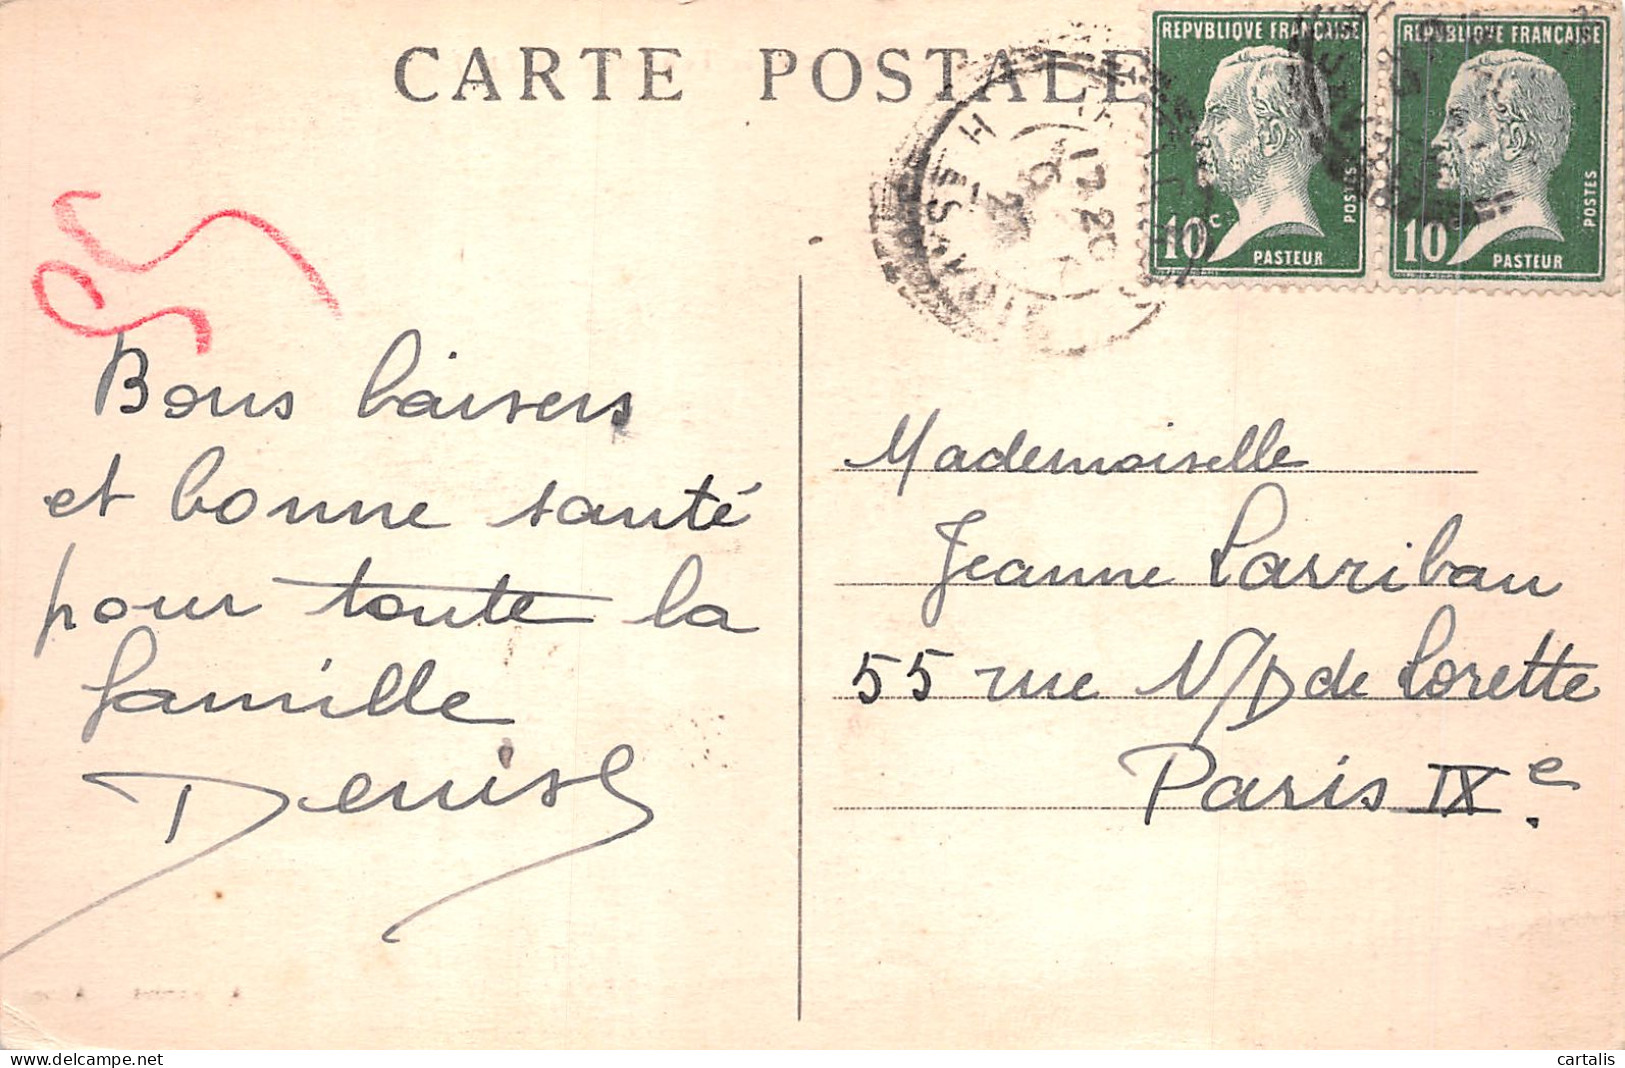 CARTE POSTALE
REPVBLIQVE FRANÇAISE
POSTES
10c
PASTEUR
REPVBLIQVE FRANÇAISE
POSTES
10
PASTEUR
Bons baisers
et bonne santé
pour toute la
famille
Denise
Mademoiselle
Jeanne Larribau
55 rue N/D de Lorette
Paris IXe.
www.delcampe.net
cartalis